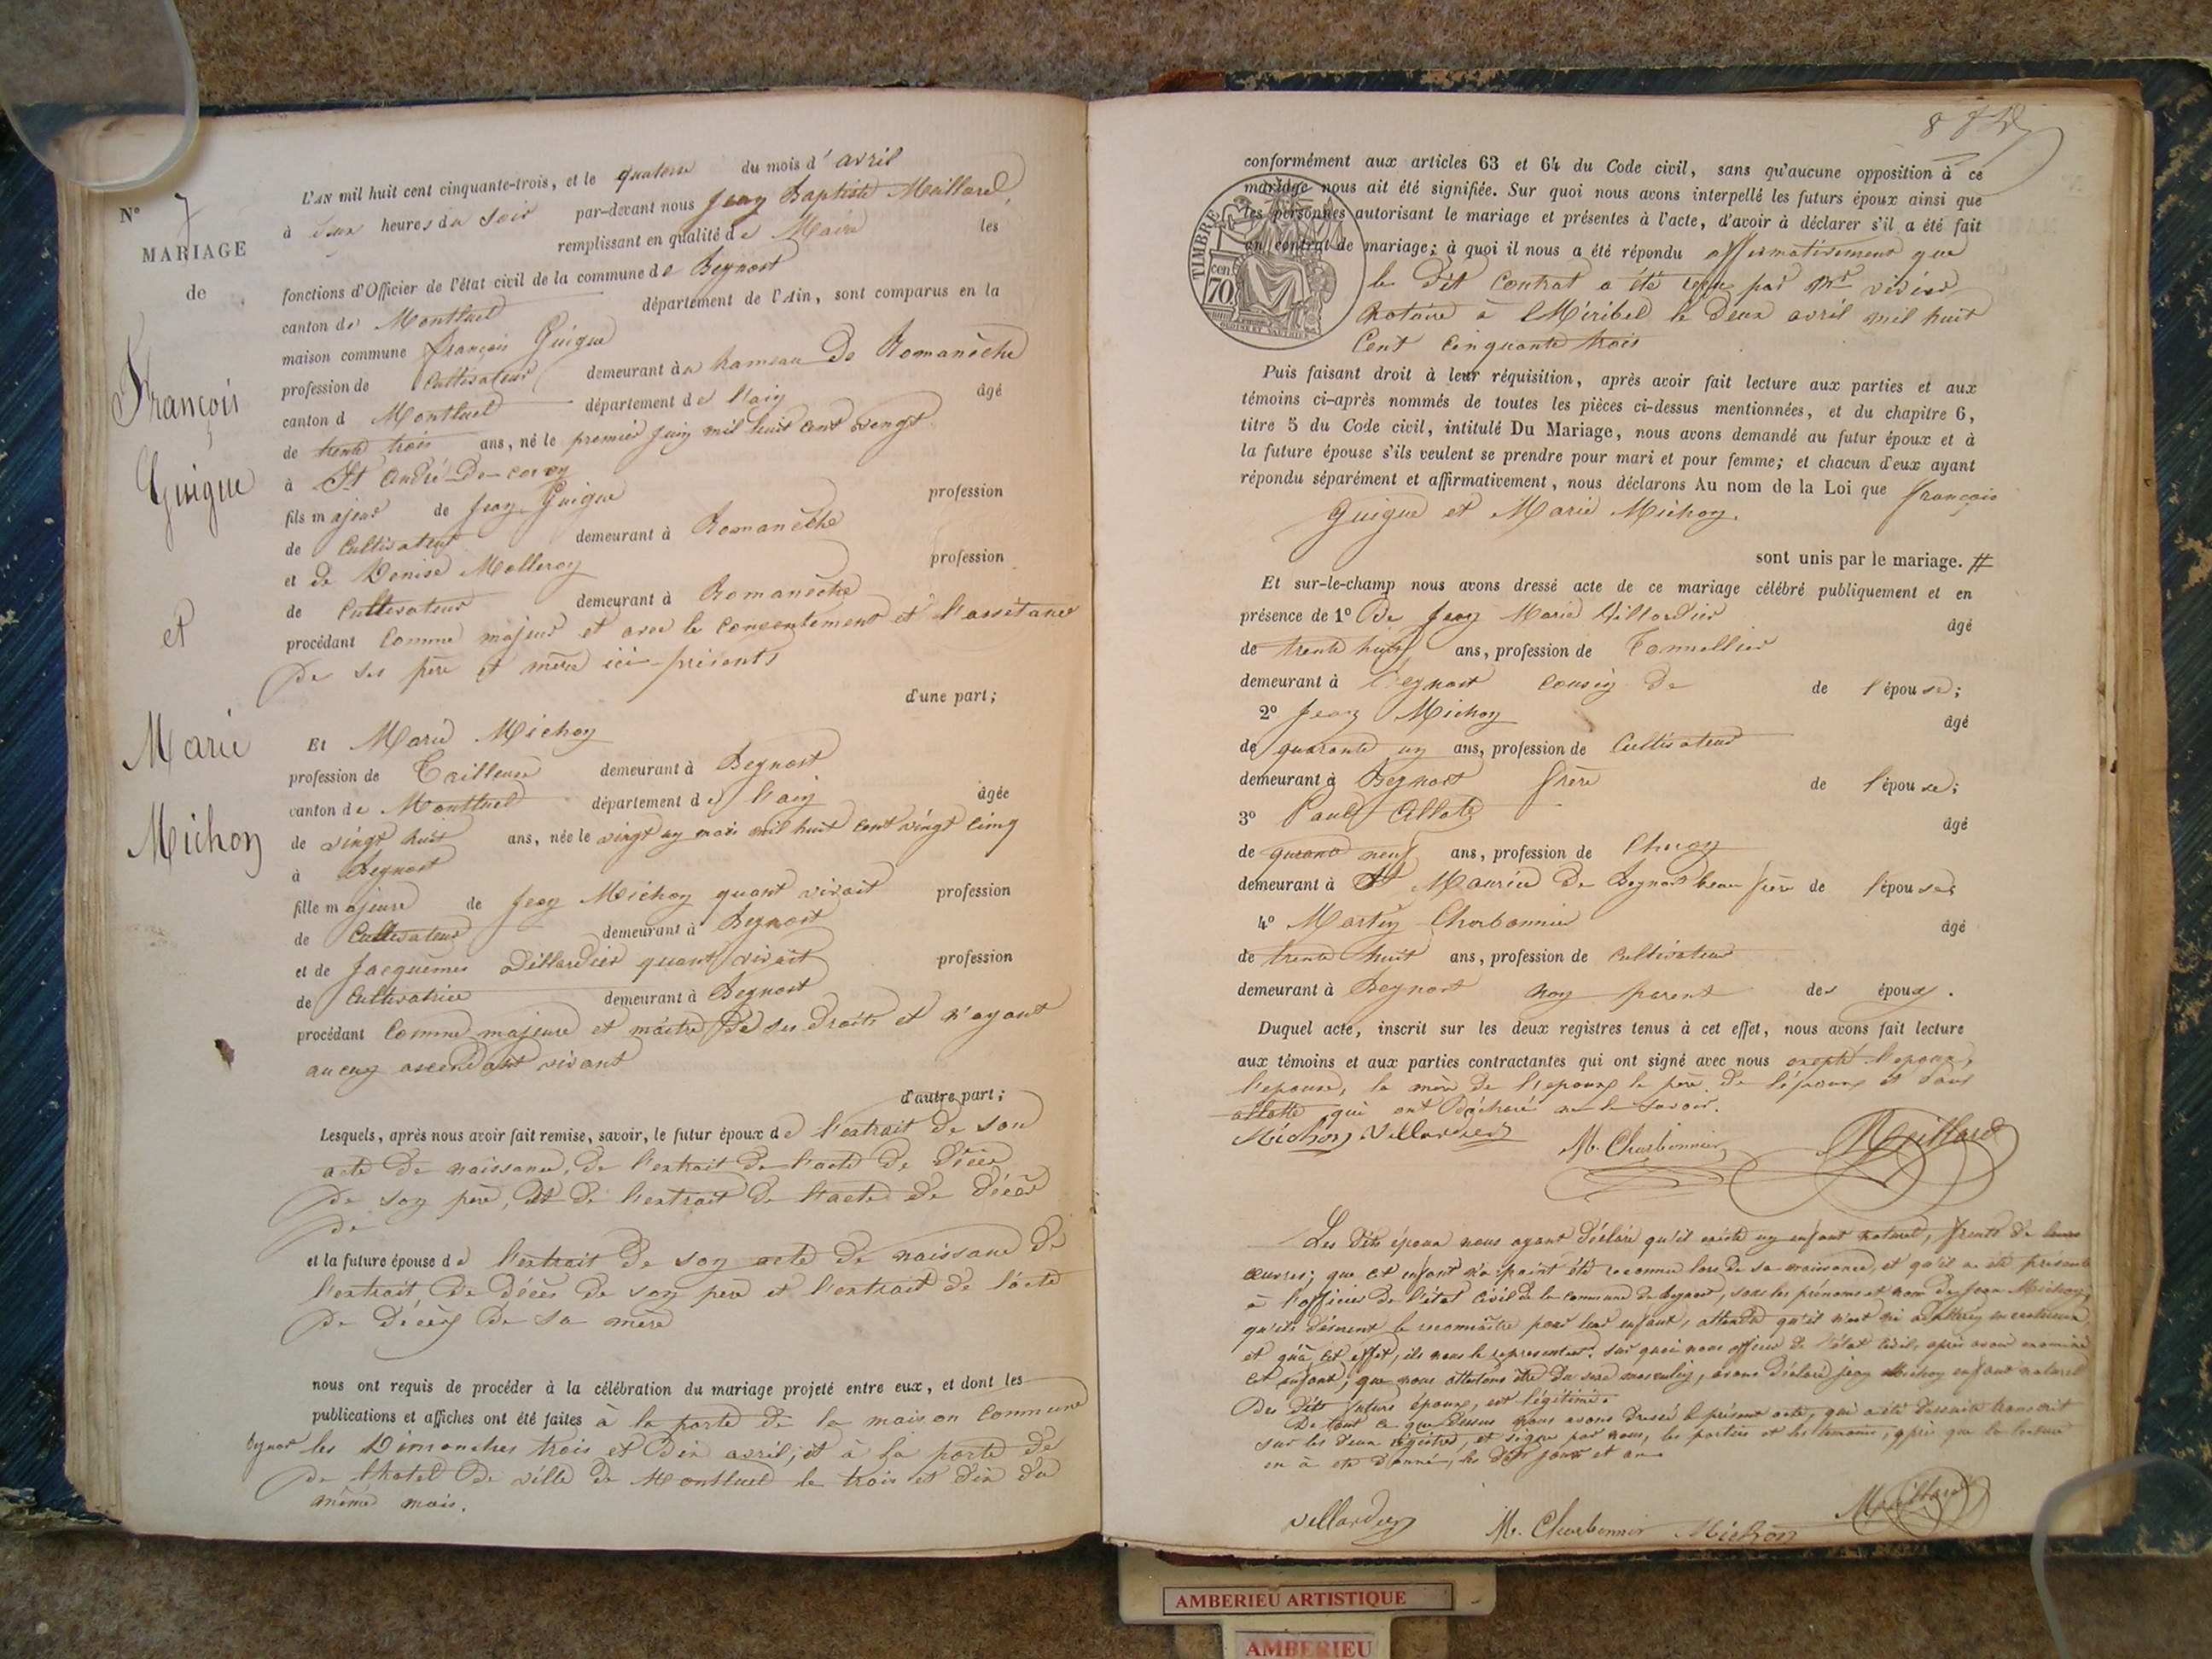 N° 7
MARIAGE
de
François
Guigue
et
Marie
Michon
L'AN mil huit cent cinquante-trois, et le quatorze du mois d'avril
à deux heures du soir par-devant nous Jean Baptiste Maillard,
remplissant en qualité de Maire les
fonctions d'Officier de l'état civil de la commune de Beynost
canton de Montluel département de l'Ain, sont comparus en la
maison commune françois Guigue
profession de Cultivateur demeurant au hameau De Romanèche
canton d Montluel département de l'ain âgé
de trente trois ans, né le premier juin mil huit cent vingt
à St André-De-corcy
fils majeur de Jean Guigue profession
de Cultivateur demeurant à Romanèche
et de Denise Molleron profession
de Cultivateur demeurant à Romanèche
procédant Comme majeur et avec le consentement et l'assistance
De ses père et mère ici-présents
d'une part;
Et Marie Michon
profession de Tailleuse demeurant à Beynost
canton de Montluel département de l'ain âgée
de vingt huit ans, née le vingt un mars mil huit cent vingt cinq
à Beynost
fille majeure de Jean Michon quant vivait profession
de Cultivateur demeurant à Beynost
et de Jacquème Villardier quant vivait profession
de Cultivatrice demeurant à Beynost
procédant Comme majeure et maitre De ses Droits et n'ayant
aucun ascendant vivant
d'autre part;
Lesquels, après nous avoir fait remise, savoir, le futur époux de l'extrait De son
acte De naissance, De l'extrait De l'acte De Décès
De son père, et De l'extrait De l'acte De Décès
De
et la future épouse de l'extrait De son acte De naissance De
l'extrait De Décès De son père et l'extrait De l'acte
De Décès De Sa mère
nous ont requis de procéder à la célébration du mariage projeté entre eux, et dont les
publications et affiches ont été faites à la porte De la maison Commune
les Dimanches trois et Dix avril, et à la porte De
De l'hotel De ville De Montluel le trois et Dix Du
même mois.
conformément aux articles 63 et 64 du Code civil, sans qu'aucune opposition à ce
mariage nous ait été signifiée. Sur quoi nous avons interpellé les futurs époux ainsi que
les personnes autorisant le mariage et présentes à l'acte, d'avoir à déclarer s'il a été fait
un contrat de mariage; à quoi il nous a été répondu affirmativement que
le Dit Contrat a été reçu par Mr
Notaire à Miribel le Deux avril mil huit
Cent Cinquante trois
TIMBRE
cen.
70
Puis faisant droit à leur réquisition, après avoir fait lecture aux parties et aux
témoins ci-après nommés de toutes les pièces ci-dessus mentionnées, et du chapitre 6,
titre 5 du Code civil, intitulé Du Mariage, nous avons demandé au futur époux et à
la future épouse s'ils veulent se prendre pour mari et pour femme; et chacun d'eux ayant
répondu séparément et affirmativement, nous déclarons Au nom de la Loi que françois
Guigue et Marie Michon.
sont unis par le mariage. #
Et sur-le-champ nous avons dressé acte de ce mariage célébré publiquement et en
présence de 1° De Jean Marie Villardier âgé
de trente huit ans, profession de Tonnellier
demeurant à Beynost Cousin De de l'épouse;
2° Jean Michon âgé
de quarante un ans, profession de Cultivateur
demeurant à Beynost frère de l'épouse;
3° Paul Allatte âgé
de quarante neuf ans, profession de
demeurant à St Maurice De Beynost beau frère de l'épouse;
4° Martin Charbonnier âgé
de trente huit ans, profession de Cultivateur
demeurant à Beynost non parent des époux.
Duquel acte, inscrit sur les deux registres tenus à cet effet, nous avons fait lecture
aux témoins et aux parties contractantes qui ont signé avec nous excepté l'époux,
l'épouse, la mère De l'époux le père De l'époux et Paul
allatte qui ont Déclaré ne le Savoir.
Michon Villardier M. Charbonnier Maillard
Les Dits époux nous ayant Déclaré qu'il existe un enfant naturel, fruit De leurs
œuvres; que cet enfant n'a point été reconnu lors De sa naissance, et qu'il a été présenté
à l'officier De l'état Civil De la Commune De beynost, sous les prénoms et nom De Jean Michon,
qu'ils Désirent le reconnaître pour leur enfant, attendu qu'il n'est ni adultérin ni incestueux
et qu'à cet effet, ils nous le représentent. Sur quoi nous officier De l'état Civil, après avoir examiné
cet enfant, que nous attestons être Du sexe masculin, avons Déclaré Jean Michon enfant naturel
Des Dits futurs époux, est légitimé.
De tout ce que Dessus nous avons Dressé le présent acte, qui a été Desuite transcrit
sur les Deux régistres, et signé par nous, les parties et les témoins, après que la lecture
en à été Donné, les Dits jour et an.
Villardier M. Charbonnier Michon Maillard
AMBERIEU ARTISTIQUE
AMBERIEU